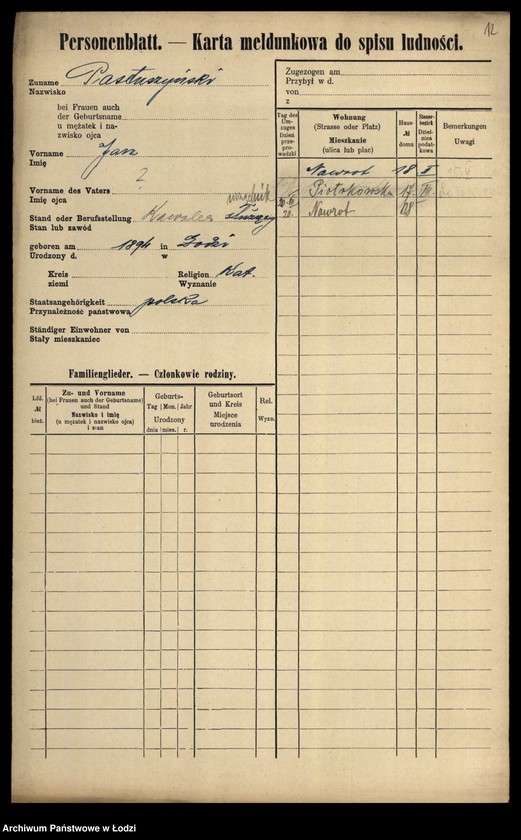 12
Personenblatt. — Karta meldunkowa do spisu ludności.
Zuname Pastuszyński
Nazwisko
bei Frauen auch
der Geburtsname
u mężatek i na-
zwisko ojca
Vorname Jan
Imię
Vorname des Vaters ?
Imię ojca
urzędnik
Stand oder Berufsstellung Kawaler
Stan lub zawód
geboren am 1894 in Łodzi
Urodzony d. w
Kreis Religion Kat.
ziemi Wyznanie
Staatsangehörigkeit polska
Przynależność państwowa
Ständiger Einwohner von
Stały mieszkaniec
Familienglieder. — Członkowie rodziny.
Lfd. № bież.
Zu- und Vorname
(bei Frauen auch der Geburtsname)
und Stand
Nazwisko i imię
(u mężatek i nazwisko ojca)
i stan
Geburts-
Tag Mon. Jahr
Urodzony
dnia mies. r.
Geburtsort
und Kreis
Miejsce
urodzenia
Rel.
Wyzn.
Zugezogen am
Przybył w d.
von
z
Tag des
Um-
zuges
Dzień
prze-
prowadzki
Wohnung
(Strasse oder Platz)
Mieszkanie
(ulica lub plac)
Haus-
№
domu
Steuer-
bezirk
Dziel-
nica
podat-
kowa
Bemerkungen
Uwagi
Nawrot 18 II
Piotrkowska 17
20. Nawrot
Archiwum Państwowe w Łodzi